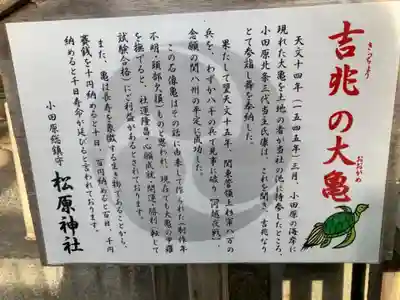 吉兆の大亀
きっちょう
おおがめ
天文十四年(一五四五年)三月、小田原の海岸に
現れた大亀を土地の者が当社の池に持参したところ、
小田原北条三代当主氏康は、これを聞き吉兆なり
とて参詣し舞を奉納した。
果たして翌天文十五年、関東管領上杉軍八万の
兵を、わずか八千の兵で見事に破り「河越夜戦」
念願の関八州の平定に成功した。
この石像亀はその話に由来して作られた(制作年
不明、頭部欠損)ものですが、現在でも大亀の甲羅
を撫でると、社運隆昌・心願成就・開運・勝利(転じて
試験合格)にご利益があるとされております。
また、亀は長寿を象徴する生き物であることから、
賽銭を十円納めると十日、百円納めると百日、千円
納めると千日寿命が延びると言われております。
小田原総鎮守 松原神社